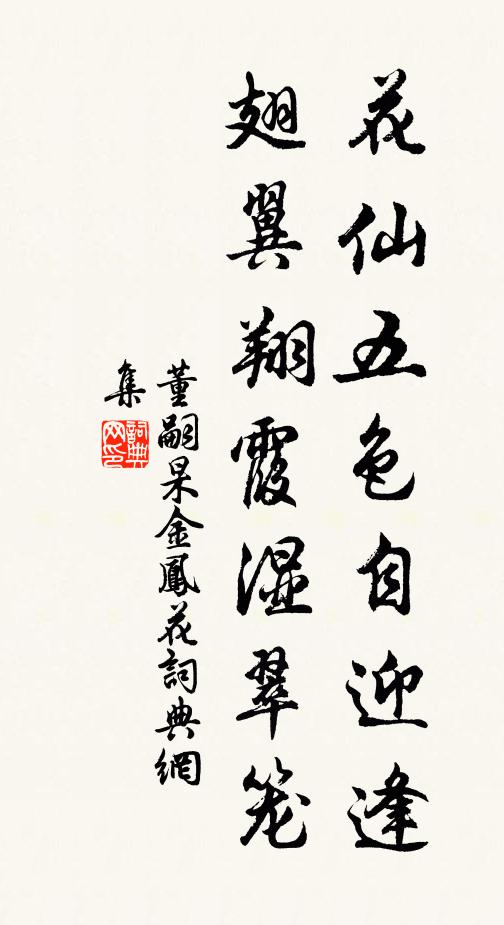 花仙五色自迎逢
翅翼翔霞湿翠笼
董嗣杲金鳳花詞典網
集
詞典网印